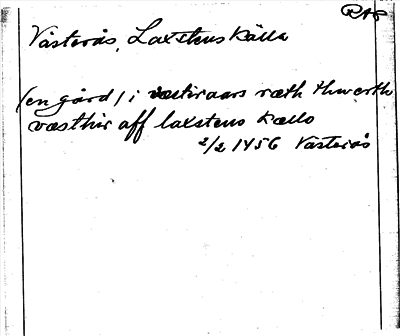 RAP
Västerås, Laxstens källa
(en gård) i westiraars ræth thwerth
væsthir aff laxstens kællo
2/2 1456 Västerås